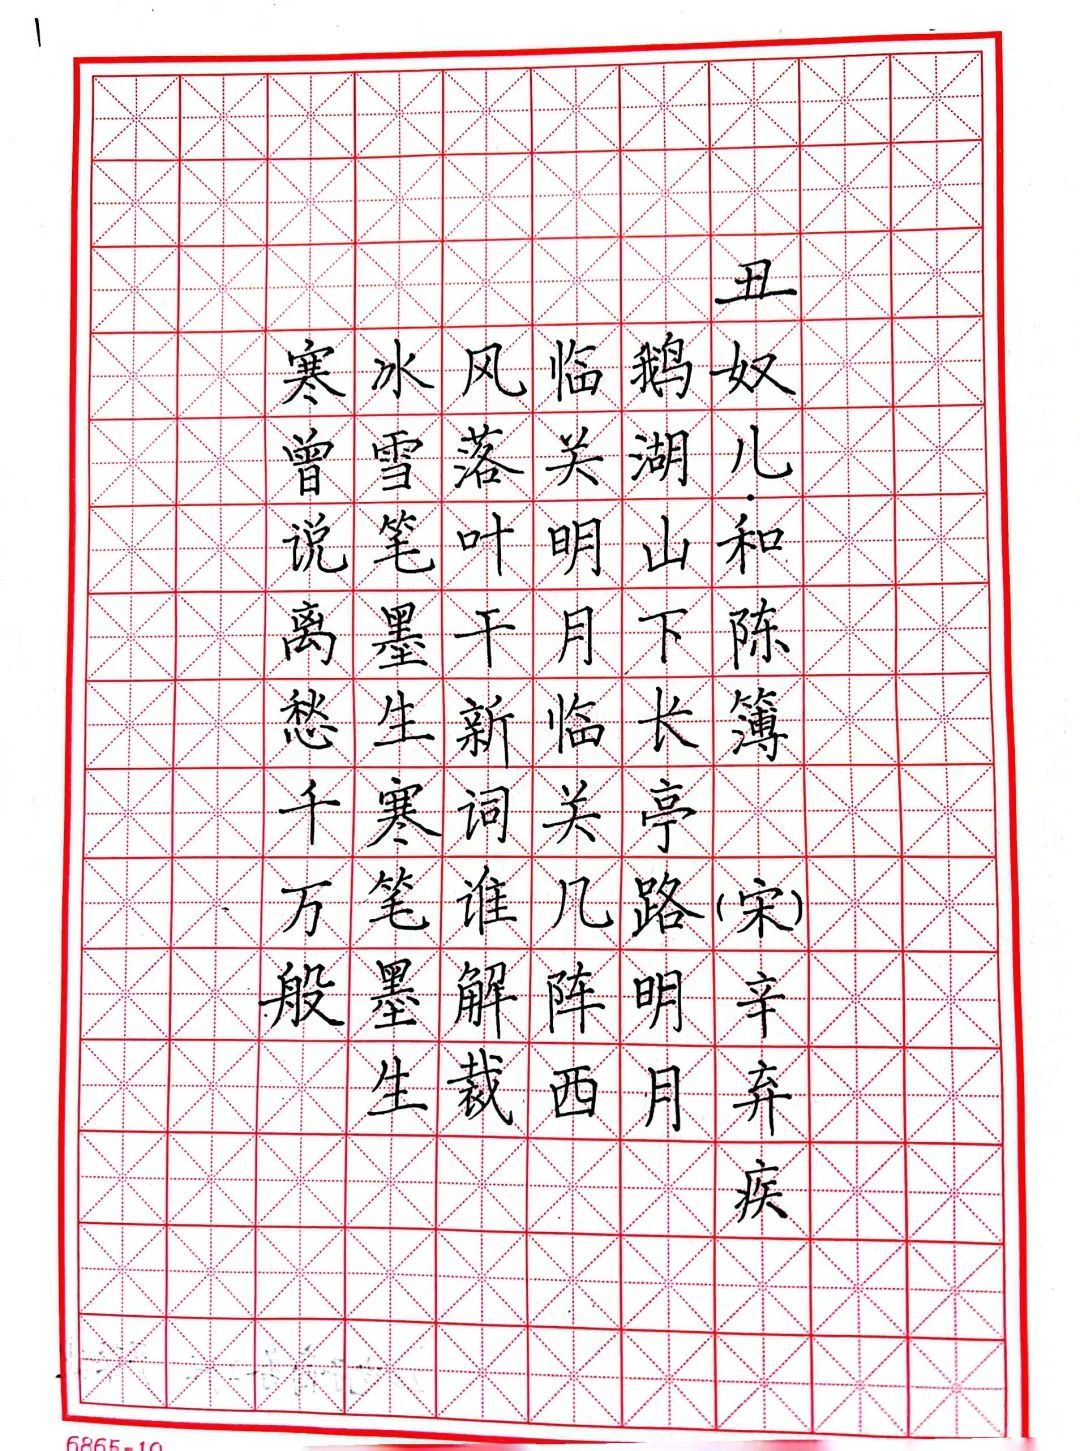 丑奴儿·和陈簿(宋)辛弃疾
鹅湖山下长亭路明月
临关明月临关几阵西
风落叶干新词谁解裁
冰雪笔墨生寒笔墨生
寒曾说离愁千万般
6865-10